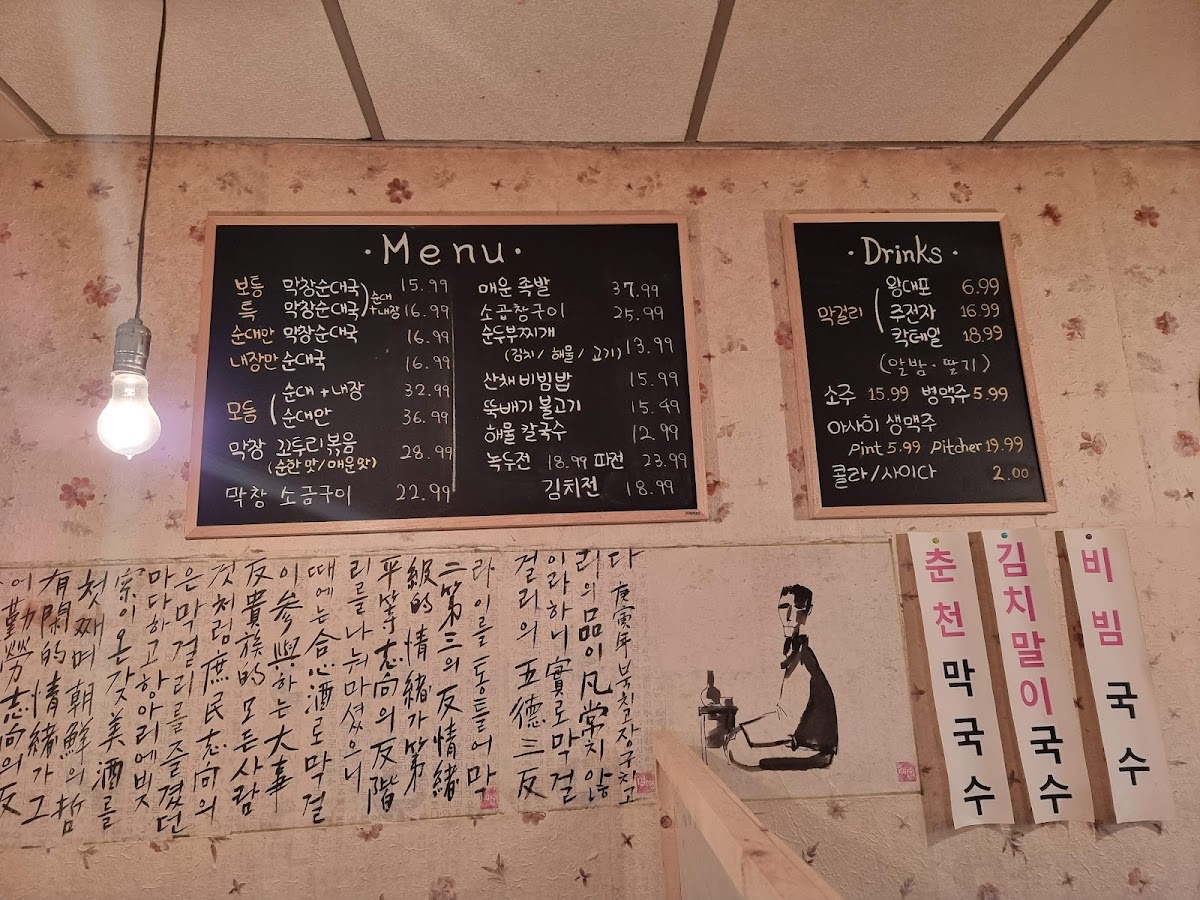 ·Menu·
보통 막창순대국 15.99
특 막창순대국 16.99
순대+내장
순대만 막창순대국 16.99
내장만 순대국 16.99
모듬 순대+내장 32.99
순대만 36.99
막창 꼬투리볶음 28.99
(순한맛/매운맛)
막창 소금구이 22.99
매운 족발 37.99
소곱창구이 25.99
순두부찌개 13.99
(김치/해물/고기)
산채비빔밥 15.99
뚝배기 불고기 15.49
해물 칼국수 12.99
녹두전 18.99 파전 23.99
김치전 18.99
·Drinks·
막걸리
왕대포 6.99
주전자 16.99
칵테일 18.99
(알밤·딸기)
소주 15.99 병맥주 5.99
아사히 생맥주
Pint 5.99 Pitcher 19.99
콜라/사이다 2.00
춘천막국수
김치말이국수
비빔국수
다 庚寅年 북치고 장구치고
리의 品이 凡常치 않
이라하니 實로 막걸
걸리의 五德三反
라 이를 통틀어 막
二 第三의 反情緖
級的 情緖가 第
平等志向의 反階
리를 나눠 마셨으니
때에는 合心酒로 막걸
이 參與하는 大事
反貴族的 모든 사람
것처럼 庶民志向의
은 막걸리를 즐겼던
마다하고 항아리에 빚
宗이 온갖 美酒를
첫째며 朝鮮의 哲
有閑的 情緖가 그
勤勞志向의 反